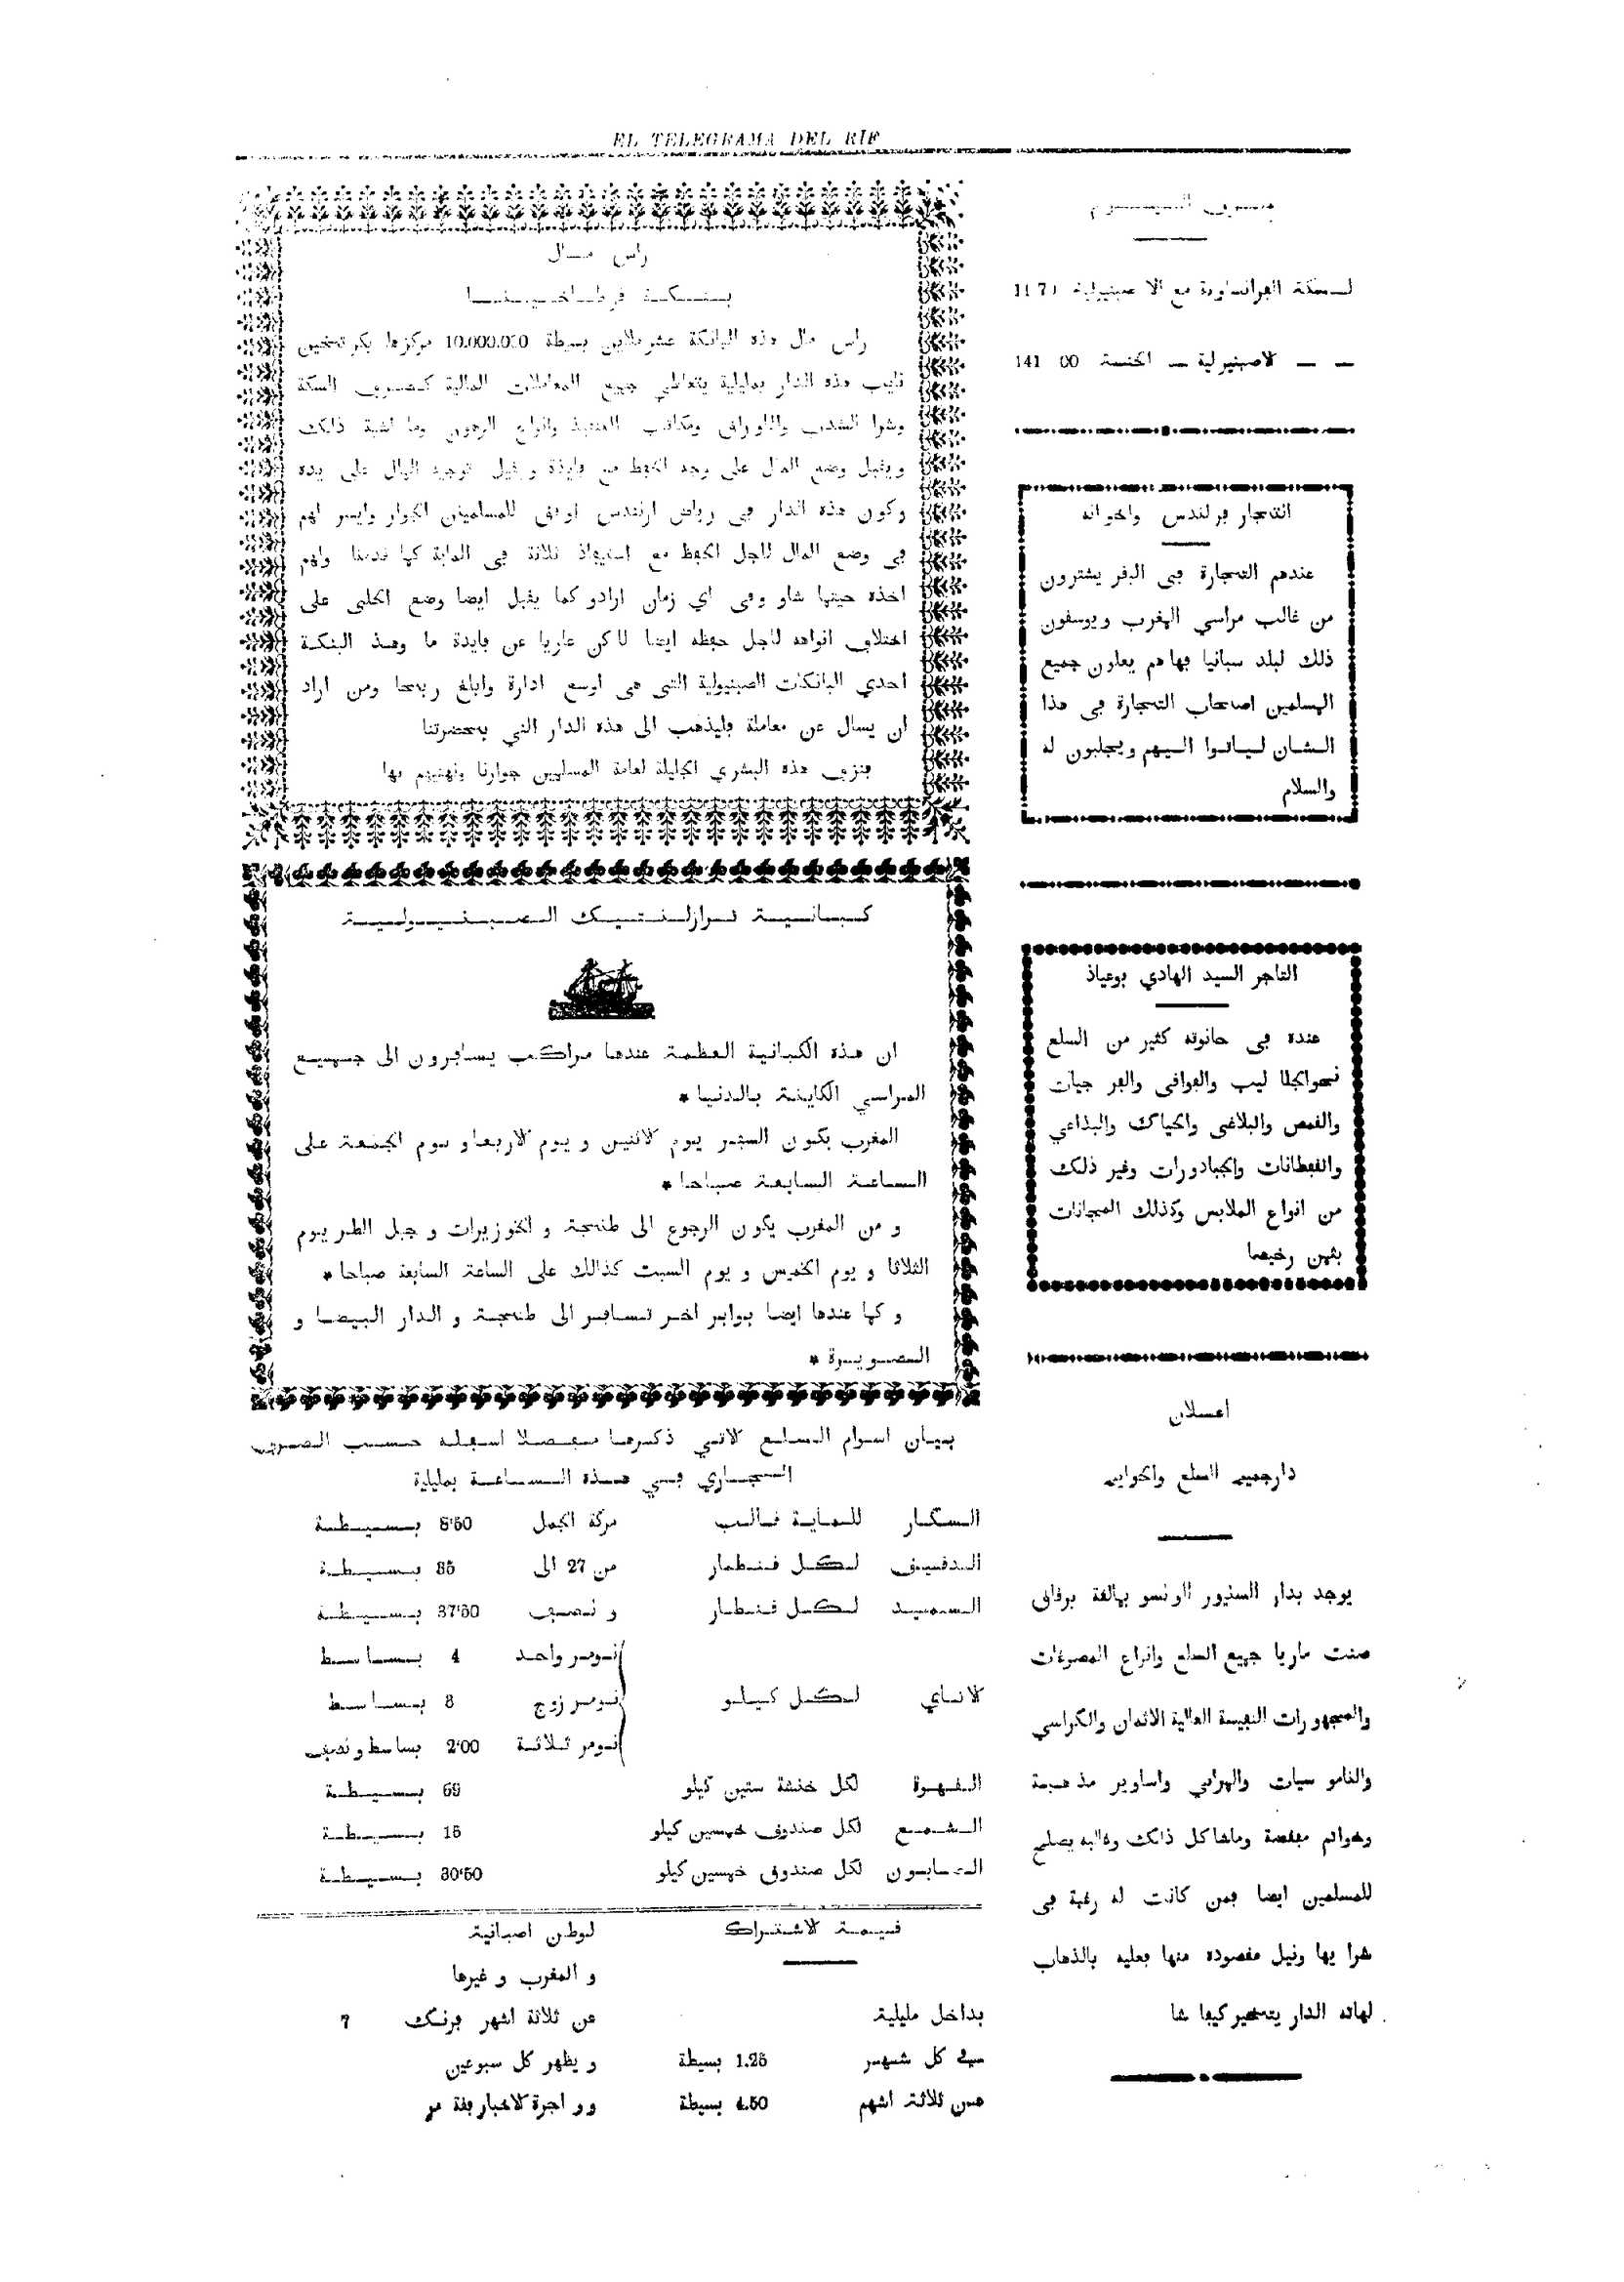 EL TELEGRAMA DEL RIF
لسكة الفرانساوية مع الا صبنيولية
لاصبنيولية — الخنسة 00 141
التجار فرلندس واخوانه
عندهم التجارة في البفر يشترون
من غالب مراسي المغرب ويوسفون
ذلك لبلد سبانيا فهاهم يعلون جميع
المسلمين اصحاب التجارة في هذا
الشان ليانوا اليهم ويجلبون له
والسلام
التاجر السيد الهادي بوعياذ
عنده في حانوته كثير من السلع
نحوالجلا ليب والفوافي والفر جيات
والقمص والبلاغي والحياك والبذاعي
والفبطانات والجبادورات وغير ذلك
من انواع الملابس وكذلك المجانات
بثمن رخيصا
اعلان
دارجميع السلع والخوايج
يوجد بدار السنيور الونسو بمالفة برفاق
صنت ماريا جميع السلع وانواع المصوغات
والمجهورات النفيسة الغالية الاثمان والكراسي
والنامو سيات والمرابي واساوير مذهبة
وخواتم مفضة وماشاكل ذالك وغالبه يصلح
للمسلمين ايضا فمن كانت له رغبة في
شرا يها ونيل مقصوده منها فعليه بالذهاب
لهاته الدار يتخيركيفا شا
راس مال
بنكة فرطاخينا
راس مال هذه البانكة عشرملاين بسيطة 10.000.000 مركزها بكرتخين
نايب هذه الدار بمليلية يتعاطى جميع المعاملات المالية كصرف السكة
وشرا والاوراق وانواع الرهون وما اشبه ذالك
ويقبل وضع المال على وجه الحفظ مع فايدة و توجيه المال على يده
وكون هذه الدار في رياض ارنندس اوفق للمسلمين الجوار وايسر لهم
في وضع المال لاجل الحفظ مع استيفاد ثلاثة في الماية كما قدمنا ولهم
اخذه حينما شاو وفي اي زمان ارادو كما يقبل ايضا وضع الحلي على
اختلاف انواهه لاجل حفظه ايضا لاكن عاريا عن فايدة ما وهذ البنكة
احدي البانكات الصبنيولية التي هي اوسع ادارة وابلغ ربحا ومن اراد
ان يسال عن معاملة فليذهب الى هذه الدار التي بحضرتنا
فنزف هذه البشري الجليلة لعامة المسلمين جوارنا ونهنيهم بها
كبانية ترازلنتيك الصبنيولية
ان هذه الكبانية العظمة عندها مراكب يسافرون الى جميع
المراسي الكاينة بالدنيا *
المغرب يكون السفر يوم لاثنين و يوم لاربعا و يوم الجمعة على
الساعة السابعة صباحا *
و من المغرب يكون الرجوع الى طنجة و الخوزيرات و جبل الطر يوم
الثلاثا و يوم الخميس و يوم السبت كذالك على الساعة السابعة صباحا *
و كما عندها ايضا بوابر اخر تسافر الى طنجة و الدار البيضا و
الصويرة *
بيان اسوام السلع لاتي ذكرها مفصلا اسفله حسب الصرف
الجاري في هذه الساعة بمليلية
السكار للماية فالب مركة الجمل 8'50 بسيطة
الدفيف لكل فنطار من 27 الى 35 بسيطة
السميد لكل فنطار و نصف 37'50 بسيطة
نومر واحد 4 بساسط
لاتاي لكل كيلو نومر زوج 3 بساسط
نومر ثلاثة 2'00 بساسط ونصف
الفهوة لكل خنشة ستين كيلو 69 بسيطة
الشمع لكل صندوق خمسين كيلو 15 بسيطة
الصابون لكل صندوق خمسين كيلو 30'50 بسيطة
فيمة لاشتراك
بداخل مليلية
كل شهر 1.25 بسيطة
عن ثلاثة اشهر 4.50 بسيطة
لوطن اصبانية
و المغرب و غيرها
عن ثلاثة اشهر فرنك 7
و يظهر كل سبوعين
و اجرة لاخبار